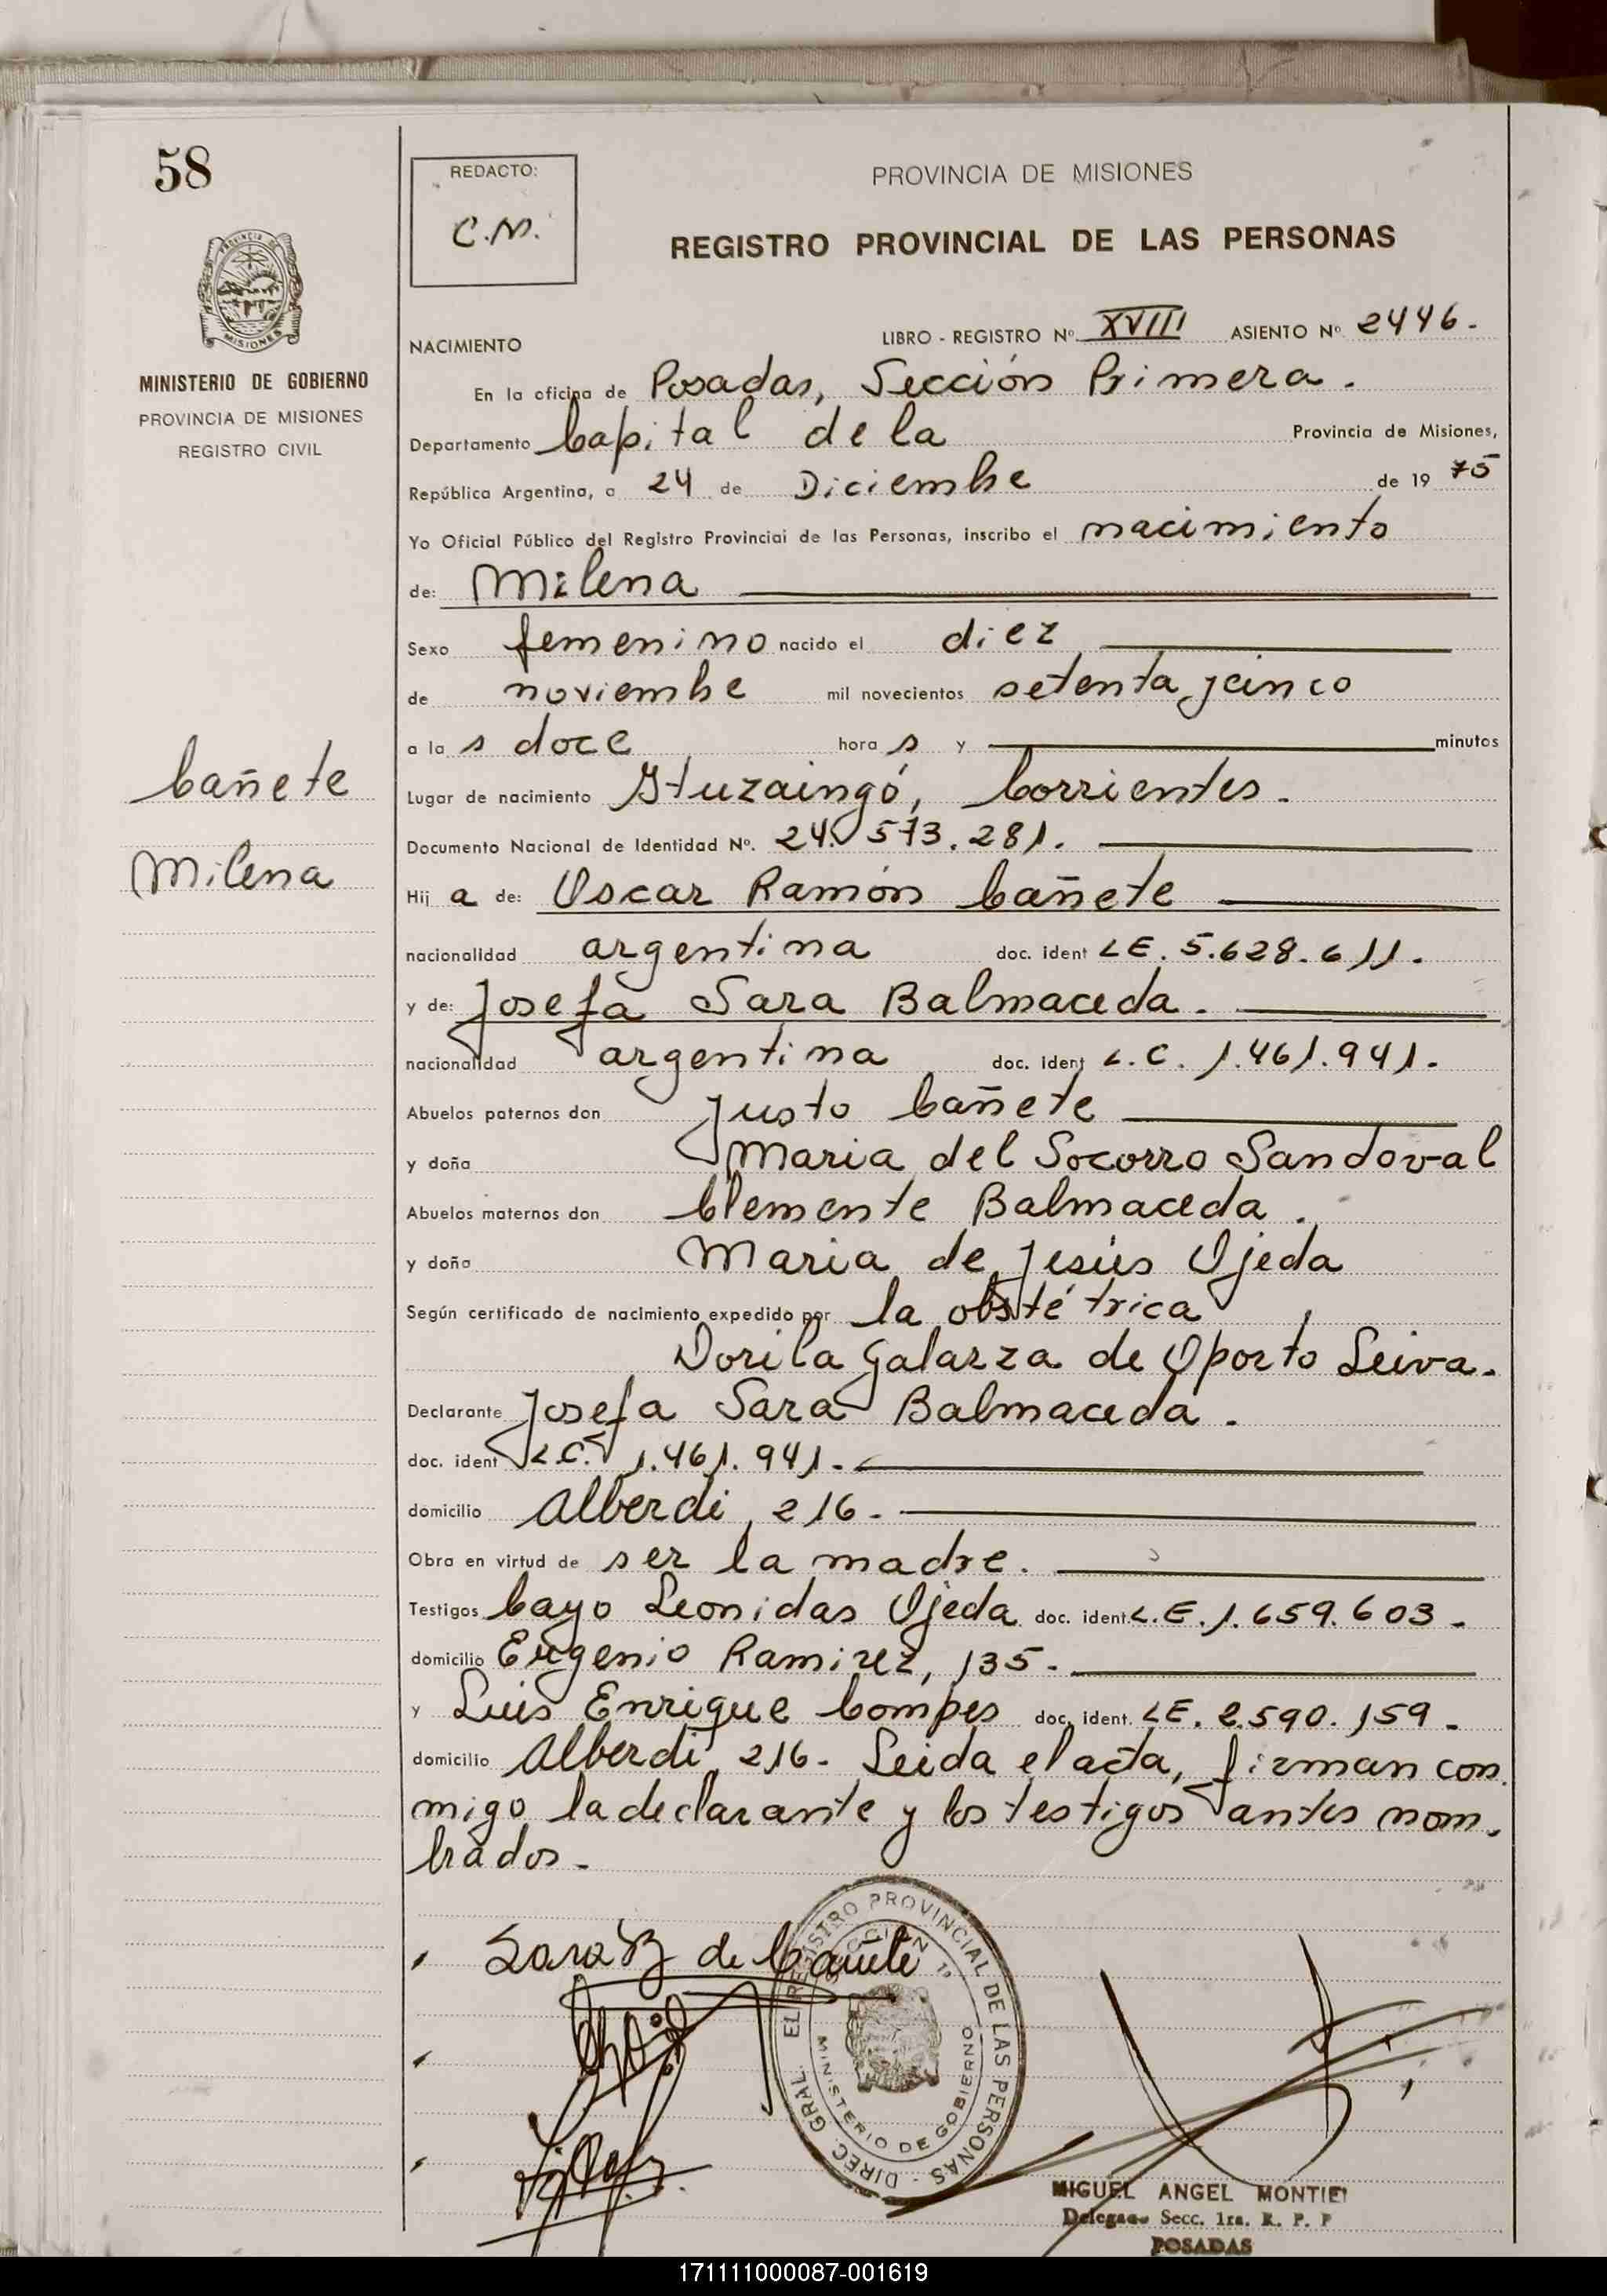 58
REDACTO:
C.M.
PROVINCIA DE MISIONES
REGISTRO PROVINCIAL DE LAS PERSONAS
PROVINCIA DE
MISIONES
MINISTERIO DE GOBIERNO
PROVINCIA DE MISIONES
REGISTRO CIVIL
NACIMIENTO
LIBRO - REGISTRO Nº XVIII ASIENTO Nº 2446.
En la oficina de Posadas, Sección Primera.
Departamento Capital de la Provincia de Misiones,
República Argentina, a 24 de Diciembre de 19 75
Yo Oficial Público del Registro Provincial de las Personas, inscribo el nacimiento
de: Milena
Sexo femenino nacido el diez
de noviembre mil novecientos setenta y cinco
a la s doce hora s y minutos
Cañete
Milena
Lugar de nacimiento Ituzaingó, Corrientes.
Documento Nacional de Identidad Nº. 24.573.281.
Hij a de: Oscar Ramón Cañete
nacionalidad argentina doc. ident LE. 5.628.611.
y de: Josefa Sara Balmaceda.
nacionalidad argentina doc. ident L.C. 1.461.941.
Abuelos paternos don Justo Cañete
y doña Maria del Socorro Sandoval
Abuelos maternos don Clemente Balmaceda.
y doña Maria de Jesús Ojeda
Según certificado de nacimiento expedido por la obstétrica
Dorila Galarza de Oporto Leiva.
Declarante Josefa Sara Balmaceda.
doc. ident L.C. 1.461.941.
domicilio Alberdi, 216.
Obra en virtud de ser la madre.
Testigos Cayo Leonidas Ojeda doc. ident. L.E. 1.659.603.
domicilio Eugenio Ramirez, 135.
y Luis Enrique Compes doc. ident. LE. 2.590.159.
domicilio Alberdi, 216. Leida el acta, firman con
migo la declarante y los testigos antes nom.
brados.
Sara B de Cañete
DIREC. GRAL. EL REGISTRO PROVINCIAL DE LAS PERSONAS
SECCION 1ª
MINISTERIO DE GOBIERNO
MIGUEL ANGEL MONTIEL
Delegado Secc. 1ra. R. P. P
POSADAS
171111000087-001619